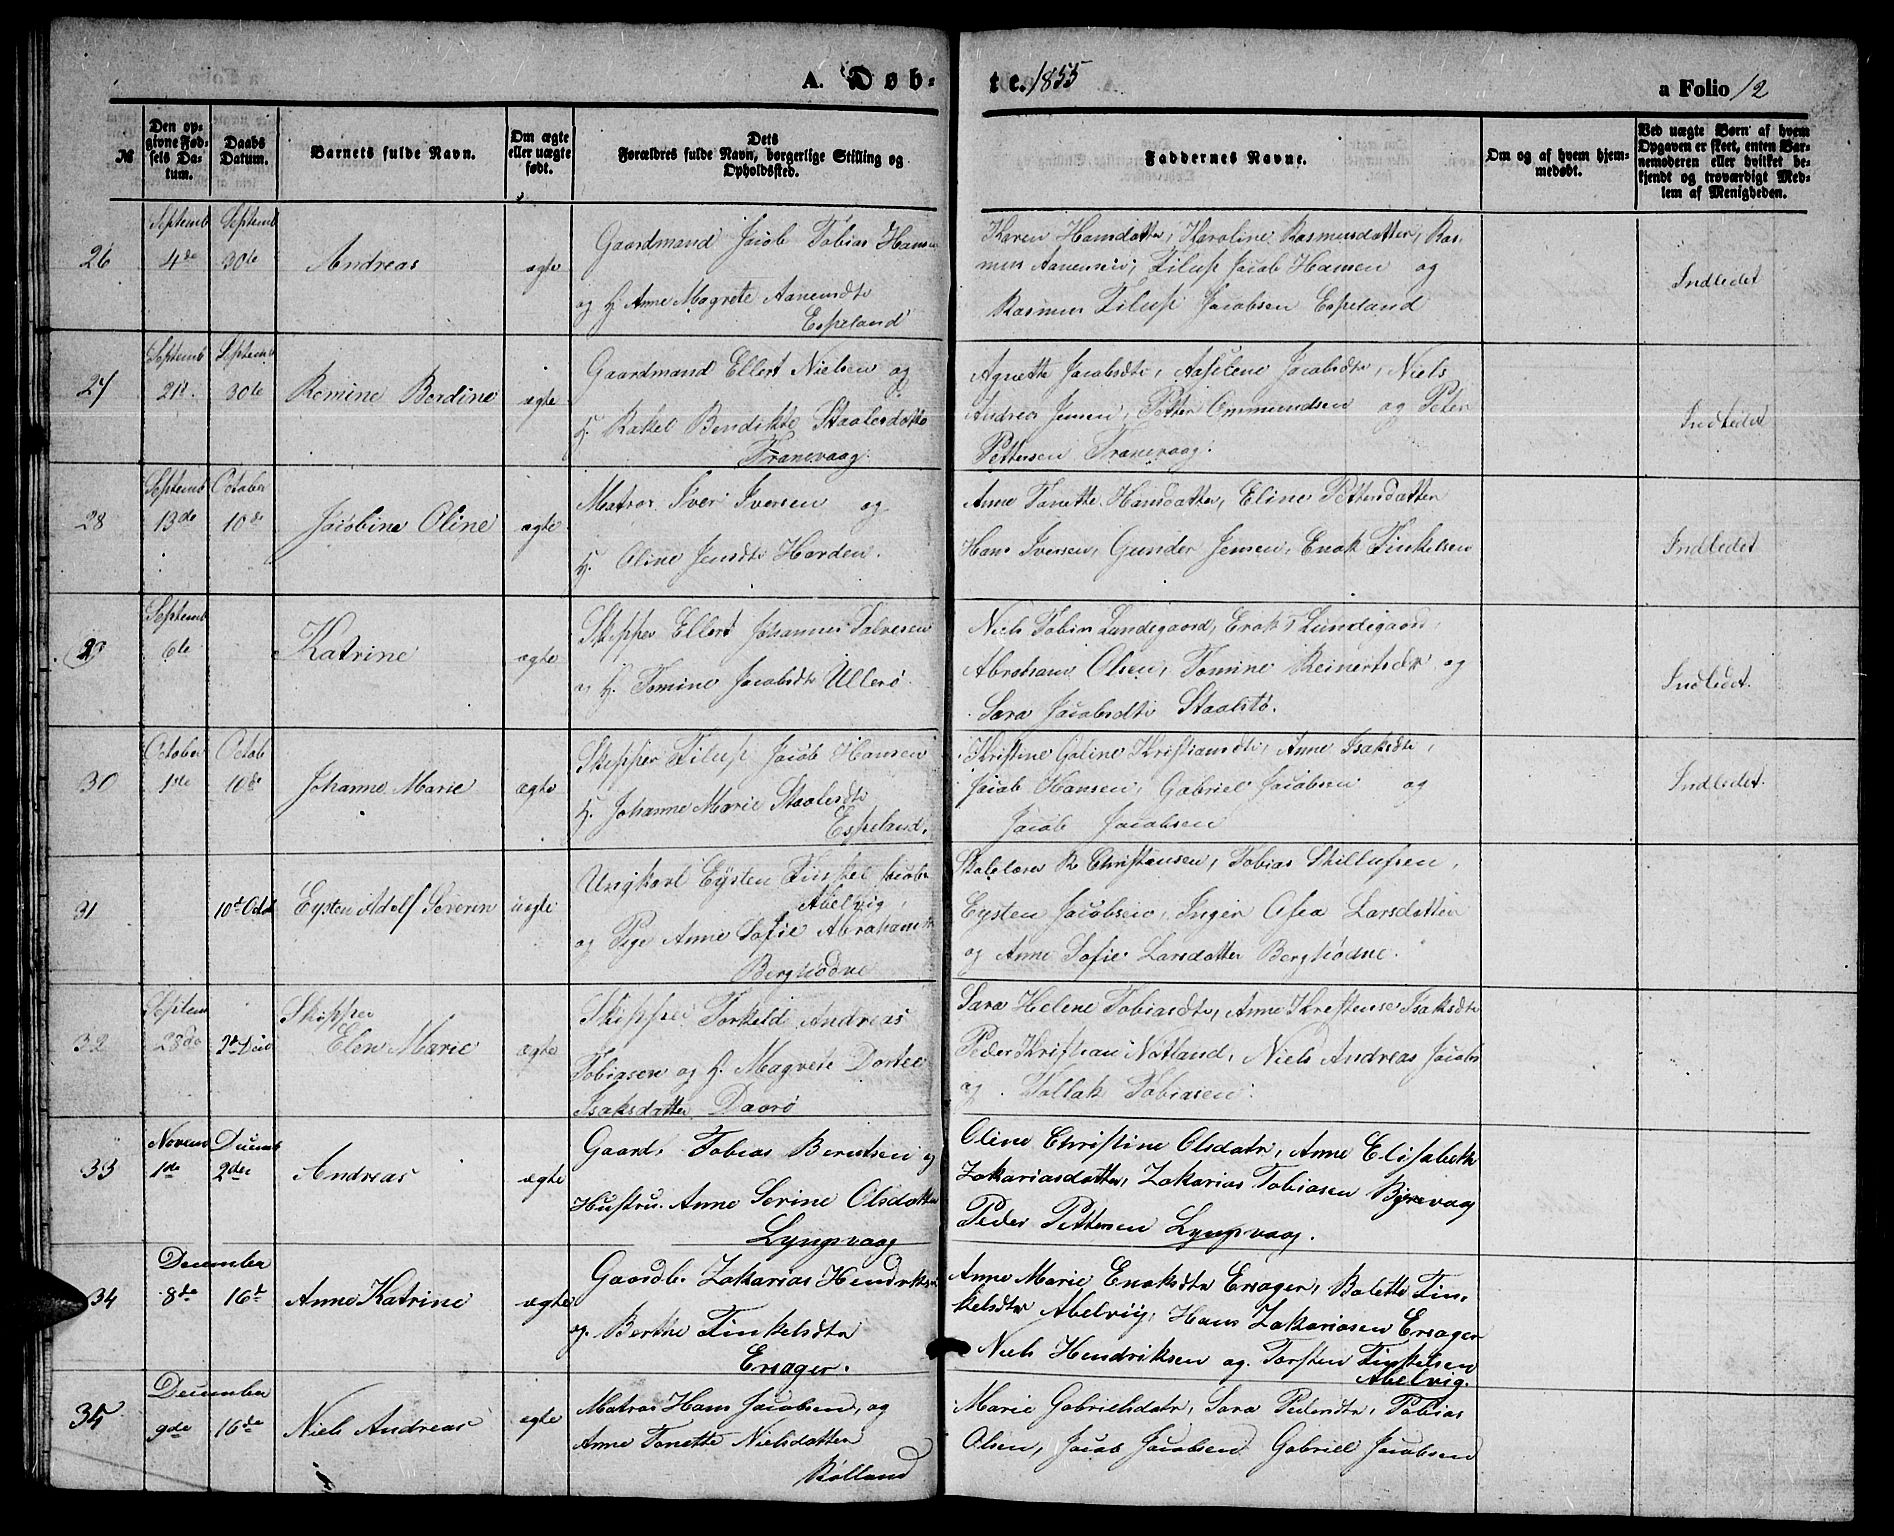 A. Døb-
te. 1855
a Folio 12
№
Den op-
givne Fød-
sels Da-
tum.
Daabs
Datum.
Barnets fulde Navn.
Om ægte
eller uægte
født.
Dets
Forældres fulde Navn, borgerlige Stilling og
Opholdssted.
Faddernes Navne.
Om og af hvem hjem-
medøbt.
Ved uægte Børn af hvem
Opgaven er skeet, enten Bar-
nemoderen eller hvilket be-
kjendt og troværdigt Med-
lem af Menigheden.
Septemb Septemb
26 4de 30te Andreas ægte
Gaardmand Jacob Tobias Hansen
og H. Anne Magrete Aanensdtr
Espeland
Karen Hansdatter, Karoline Rasmusdatter, Ras-
mus Aanensen, Filup Jacob Hansen og
Rasmus Filup Jacobsen Espeland
Indledet
Septemb Septemb
27 21de 30te Romine Berdine ægte
Gaardmand Ellert Nielsen og
H. Rakel Bendikte Staalesdatter
Tranevaag.
Agnette Jacobsdtr, Aaselene Jacobsdtr, Niels
Andreas Jensen, Petter Ommundsen og Peter
Pettersen Tranevaag.
Indledet
Septemb October
28 13de 10de Jacobine Oline ægte
Matros Iver Iversen og
H. Oline Jensdtr Harden.
Anne Tonette Hansdatter, Eline Pettersdatter
Hans Iversen, Gunder Jensen, Enok Finkelsen
Indledet
Septemb
29 6te Katrine ægte
Skipper Ellert Johannes Salvesen
og H. Tomine Jacobsdtr Ullerø.
Niels Tobias Lundegaard, Enok T Lundegaard
Abraham Olsen, Tomine Reinertsdtr og
Sara Jacobsdtr Staalstø.
Indledet.
October Octob
30 1ste 10de Johanne Marie ægte
Skipper Filup Jacob Hansen
H. Johanne Marie Staalesdtr
Espeland,
Kristine Goline Kristiansdtr, Anne Isaksdtr,
Jacob Hansen, Gabriel Jacobsen og
Jacob Jacobsen
Indledet.
31 10de Octb Eysten Adolf Severin uægte
Ungkarl Eysten Finkel Jacobs
Abelvig,
og Pige Anne Sofie Abrahamsdtr
Berghodne
Skolelærer R Christensen, Tobias Skillufsen,
Eysten Jacobsen, Inger Asea Larsdatter
og Anne Sofie Larsdatter Berghodne.
Septem
32 28de Skipper
Elen Marie ægte
Skipper Torkeld Andreas
Tobiasen og H. Magrete Dortee
Isaksdatter Daarø
Sara Helene Tobiasdtr, Anne Kristense Isaksdtr
Peder Kristian Notland, Niels Andreas Jacobs
og Tollak Tobiasen.
Novemb Decemb
33 1de 2den Andreas ægte
Gaardb Tobias Berntsen og
Hustru Anne Serine Olsdatter
Lyngsvaag
Oline Christine Olsdatr, Anne Elisabeth
Zakariasdatter, Zakarias Tobiasen Byrevaag
Peder Pettersen Lyngsvaag.
December
34 8de 16de Anne Katrine ægte
Gaardb. Zakarias Hendriksen
og Berthe Finkelsdtr
Ersager.
Anne Marie Enoksdtr Ersager, Bolette Fin-
kelsdtr Abelvig, Hans Zakariasen Ersager
Niels Hendriksen og Torsten Finkelsen
Abelvig.
December
35 9de 16de Niels Andreas ægte
Matros Hans Jacobsen, og
Anne Tonette Nielsdatter
Rolland
Marie Gabrielsdatr, Sara Pedersdtr, Tobias
Olsen, Jacob Jacobsen Gabriel Jacobsen